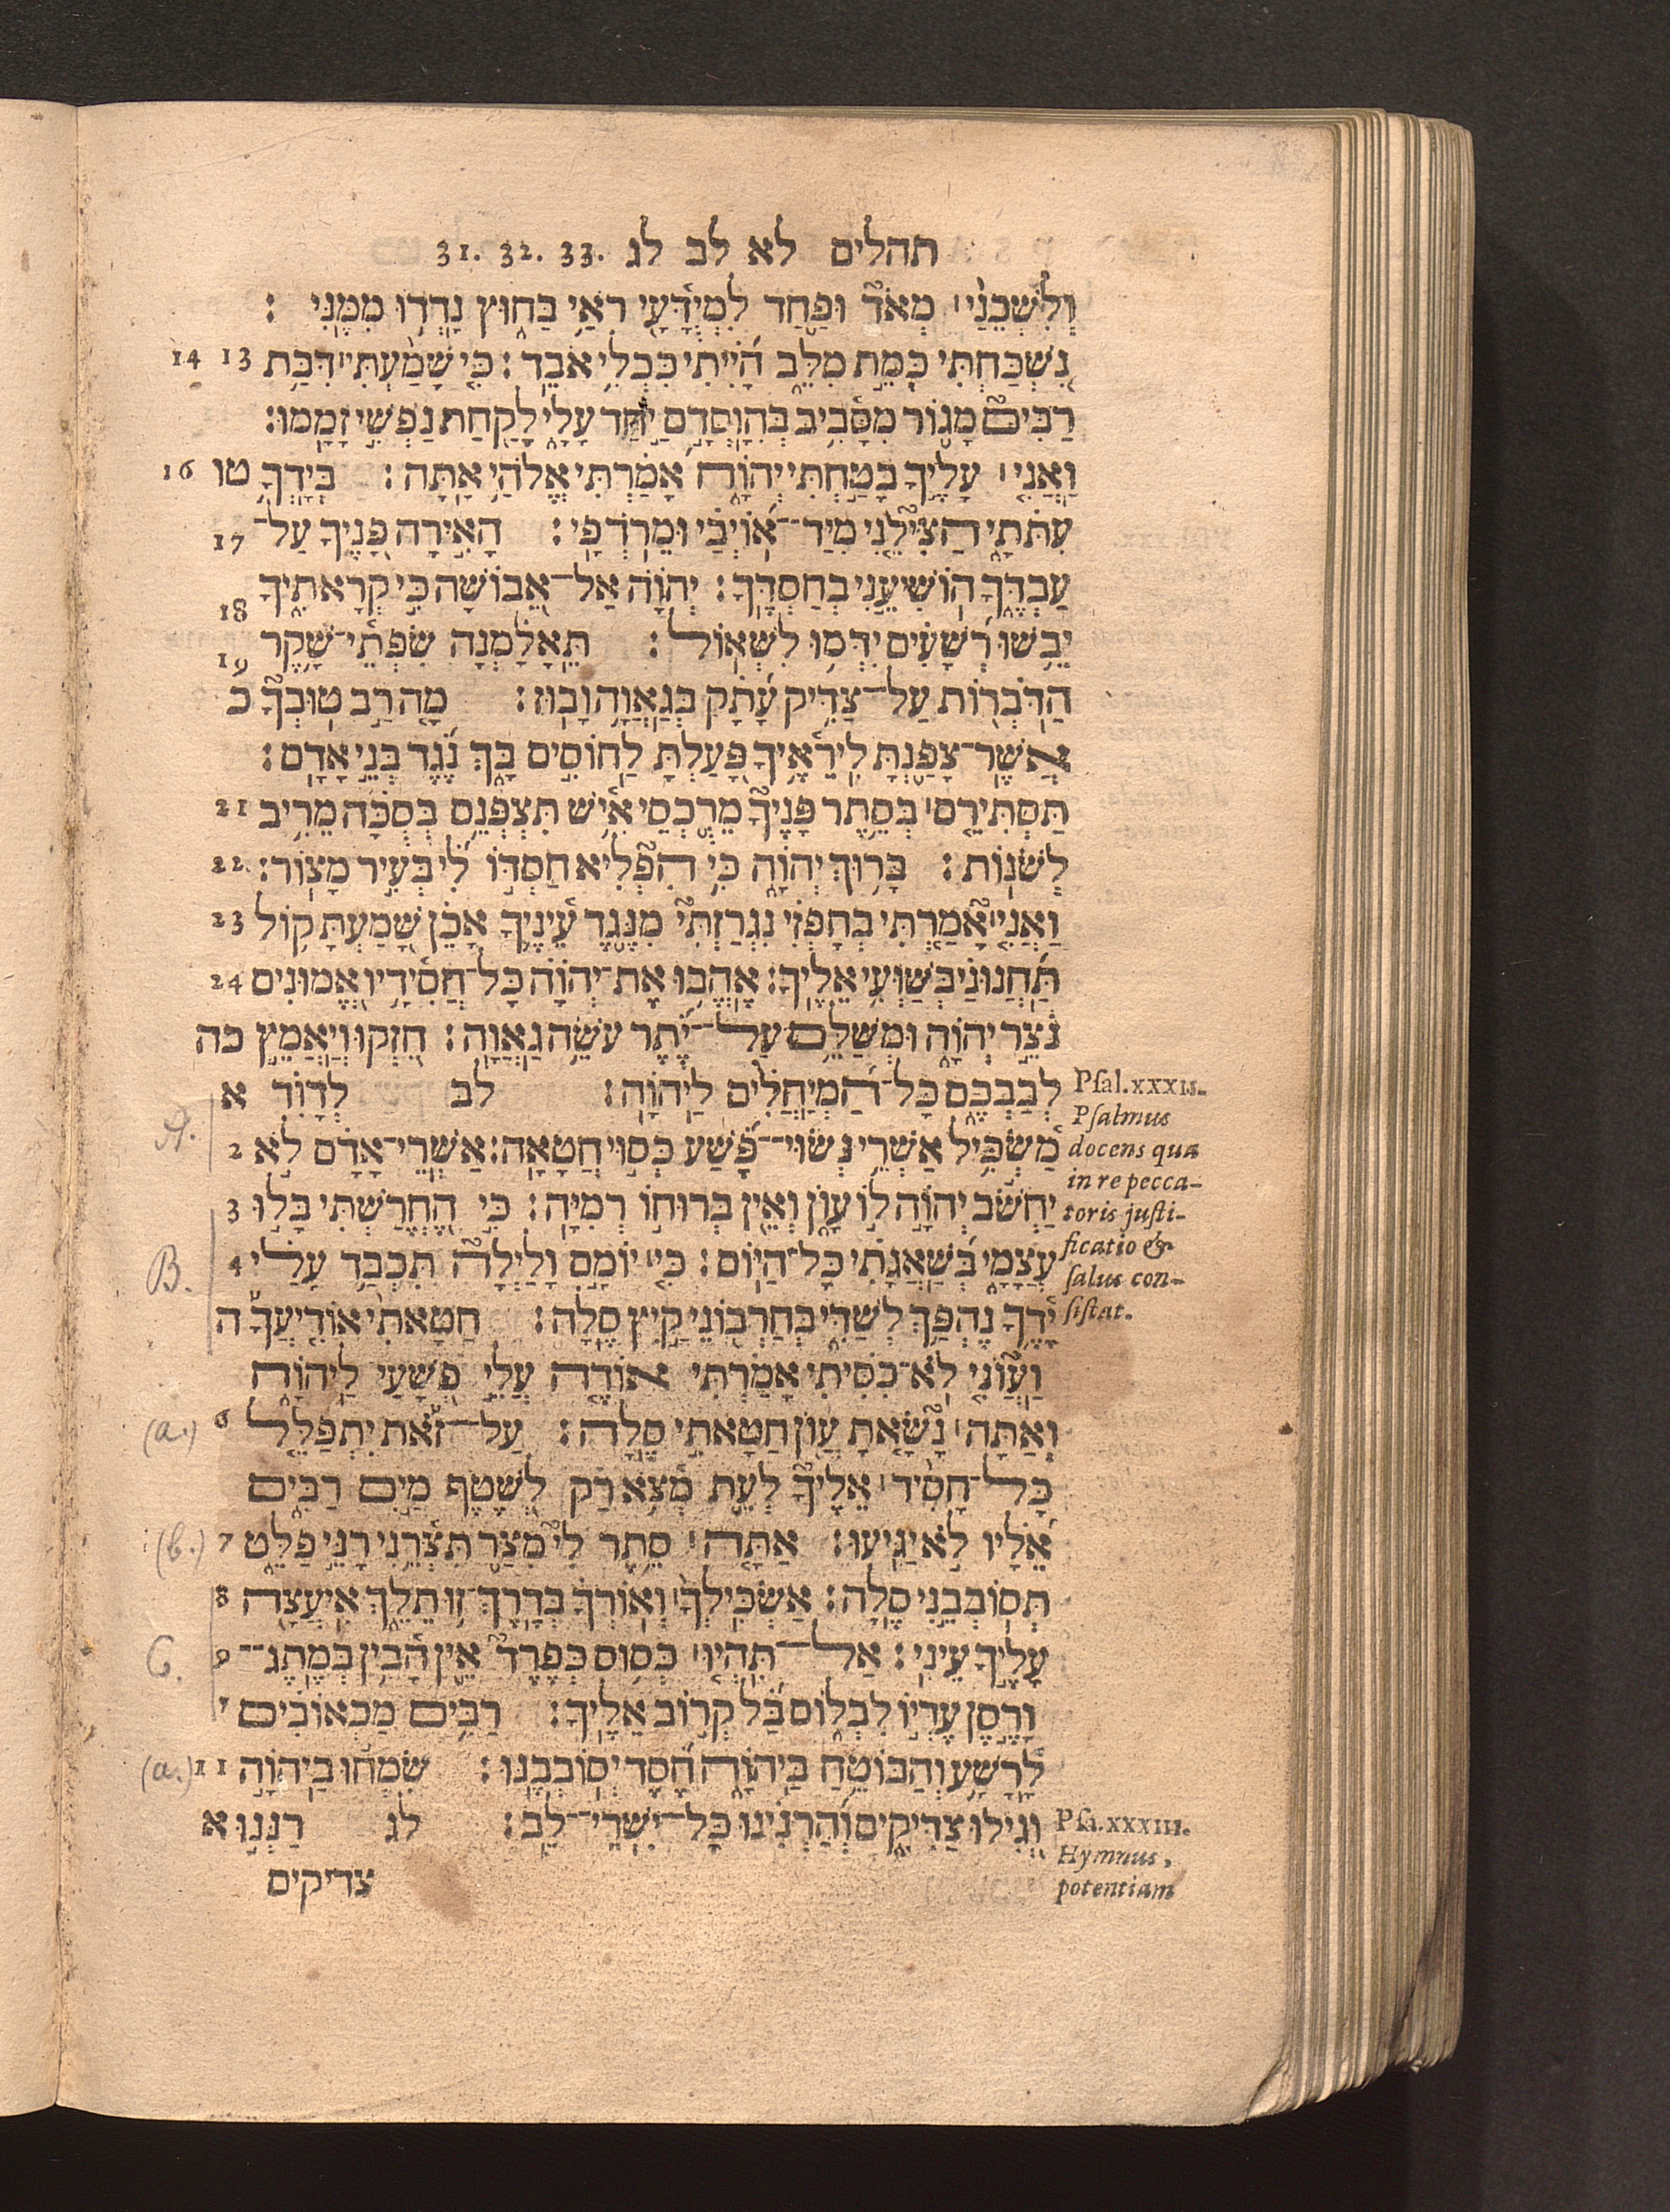 תהלים לא לב לג 31. 32. 33.
וְלִשְׁכֵנַי מְאֹד וּפַחַד לִמְיֻדָּעָי רֹאַי בַּחוּץ נָדְדוּ מִמֶּנִּי :
נִשְׁכַּחְתִּי כְּמֵת מִלֵּב הָיִיתִי כִּכְלִי אֹבֵד : כִּי שָׁמַעְתִּי דִּבַּת 13 14
רַבִּים מָגוֹר מִסָּבִיב בְּהִוָּסְדָם יַחַד עָלָי לָקַחַת נַפְשִׁי זָמָמוּ :
וַאֲנִי עָלֶיךָ בָטַחְתִּי יְהוָה אָמַרְתִּי אֱלֹהַי אָתָּה : בְּיָדְךָ טו 16
עִתֹּתָי הַצִּילֵנִי מִיַּד־אוֹיְבַי וּמֵרֹדְפָי : הָאִירָה פָנֶיךָ עַל־ 17
עַבְדֶּךָ הוֹשִׁיעֵנִי בְחַסְדֶּךָ : יְהוָה אַל־אֵבוֹשָׁה כִּי קְרָאתִיךָ 18
יֵבֹשׁוּ רְשָׁעִים יִדְּמוּ לִשְׁאוֹל : תֵּאָלַמְנָה שִׂפְתֵי־שָׁקֶר 19
הַדֹּבְרוֹת עַל־צַדִּיק עָתָק בְּגַאֲוָה וָבוּז : מָה רַב טוּבְךָ כ
אֲשֶׁר־צָפַנְתָּ לִּירֵאֶיךָ פָּעַלְתָּ לַחוֹסִים בָּךְ נֶגֶד בְּנֵי אָדָם :
תַּסְתִּירֵם בְּסֵתֶר פָּנֶיךָ מֵרֻכְסֵי אִישׁ תִּצְפְּנֵם בְּסֻכָּה מֵרִיב 21
לְשֹׁנוֹת : בָּרוּךְ יְהוָה כִּי הִפְלִיא חַסְדּוֹ לִי בְּעִיר מָצוֹר : 22
וַאֲנִי אָמַרְתִּי בְחָפְזִי נִגְרַזְתִּי מִנֶּגֶד עֵינֶיךָ אָכֵן שָׁמַעְתָּ קוֹל 23
תַּחֲנוּנַי בְּשַׁוְּעִי אֵלֶיךָ : אֶהֱבוּ אֶת־יְהוָה כָּל־חֲסִידָיו אֱמוּנִים 24
נֹצֵר יְהוָה וּמְשַׁלֵּם עַל־יֶתֶר עֹשֵׂה גַאֲוָה : חִזְקוּ וְיַאֲמֵץ כה
לְבַבְכֶם כָּל־הַמְיַחֲלִים לַיהוָה : לב לְדָוִד א
מַשְׂכִּיל אַשְׁרֵי נְשׂוּי־פֶּשַׁע כְּסוּי חֲטָאָה : אַשְׁרֵי־אָדָם לֹא 2
יַחְשֹׁב יְהוָה לוֹ עָוֹן וְאֵין בְּרוּחוֹ רְמִיָּה : כִּי הֶחֱרַשְׁתִּי בָּלוּ 3
עֲצָמָי בְּשַׁאֲגָתִי כָּל־הַיּוֹם : כִּי יוֹמָם וָלַיְלָה תִּכְבַּד עָלַי 4
יָדֶךָ נֶהְפַּךְ לְשַׁדִּי בְּחַרְבֹנֵי קַיִץ סֶלָה : חַטָּאתִי אוֹדִיעֲךָ ה
וַעֲוֹנִי לֹא־כִסִּיתִי אָמַרְתִּי אוֹדֶה עֲלֵי פְשָׁעַי לַיהוָה
וְאַתָּה נָשָׂאתָ עֲוֹן חַטָּאתִי סֶלָה : עַל־זֹאת יִתְפַּלֵּל 6
כָּל־חָסִיד אֵלֶיךָ לְעֵת מְצֹא רַק לְשֵׁטֶף מַיִם רַבִּים
אֵלָיו לֹא יַגִּיעוּ : אַתָּה סֵתֶר לִי מִצַּר תִּצְּרֵנִי רָנֵּי פַלֵּט 7
תְּסוֹבְבֵנִי סֶלָה : אַשְׂכִּילְךָ וְאוֹרְךָ בְּדֶרֶךְ־זוּ תֵלֵךְ אִיעֲצָה 8
עָלֶיךָ עֵינִי : אַל־תִּהְיוּ כְּסוּס כְּפֶרֶד אֵין הָבִין בְּמֶתֶג־ 9
וָרֶסֶן עֶדְיוֹ לִבְלוֹם בַּל קְרוֹב אֵלֶיךָ : רַבִּים מַכְאוֹבִים י
לָרָשָׁע וְהַבּוֹטֵחַ בַּיהוָה חֶסֶד יְסוֹבְבֶנּוּ : שִׂמְחוּ בַיהוָה 11
וְגִילוּ צַדִּיקִים וְהַרְנִינוּ כָּל־יִשְׁרֵי־לֵב : לג רַנְּנוּ א
צדיקים
Psal. XXXII.
Psalmus
docens qua
in re pecca-
toris justi-
ficatio &
salus con-
sistat.
Psa. XXXIII.
Hymnus,
potentiam
A.
B.
(a.)
(b.)
C.
(a.)